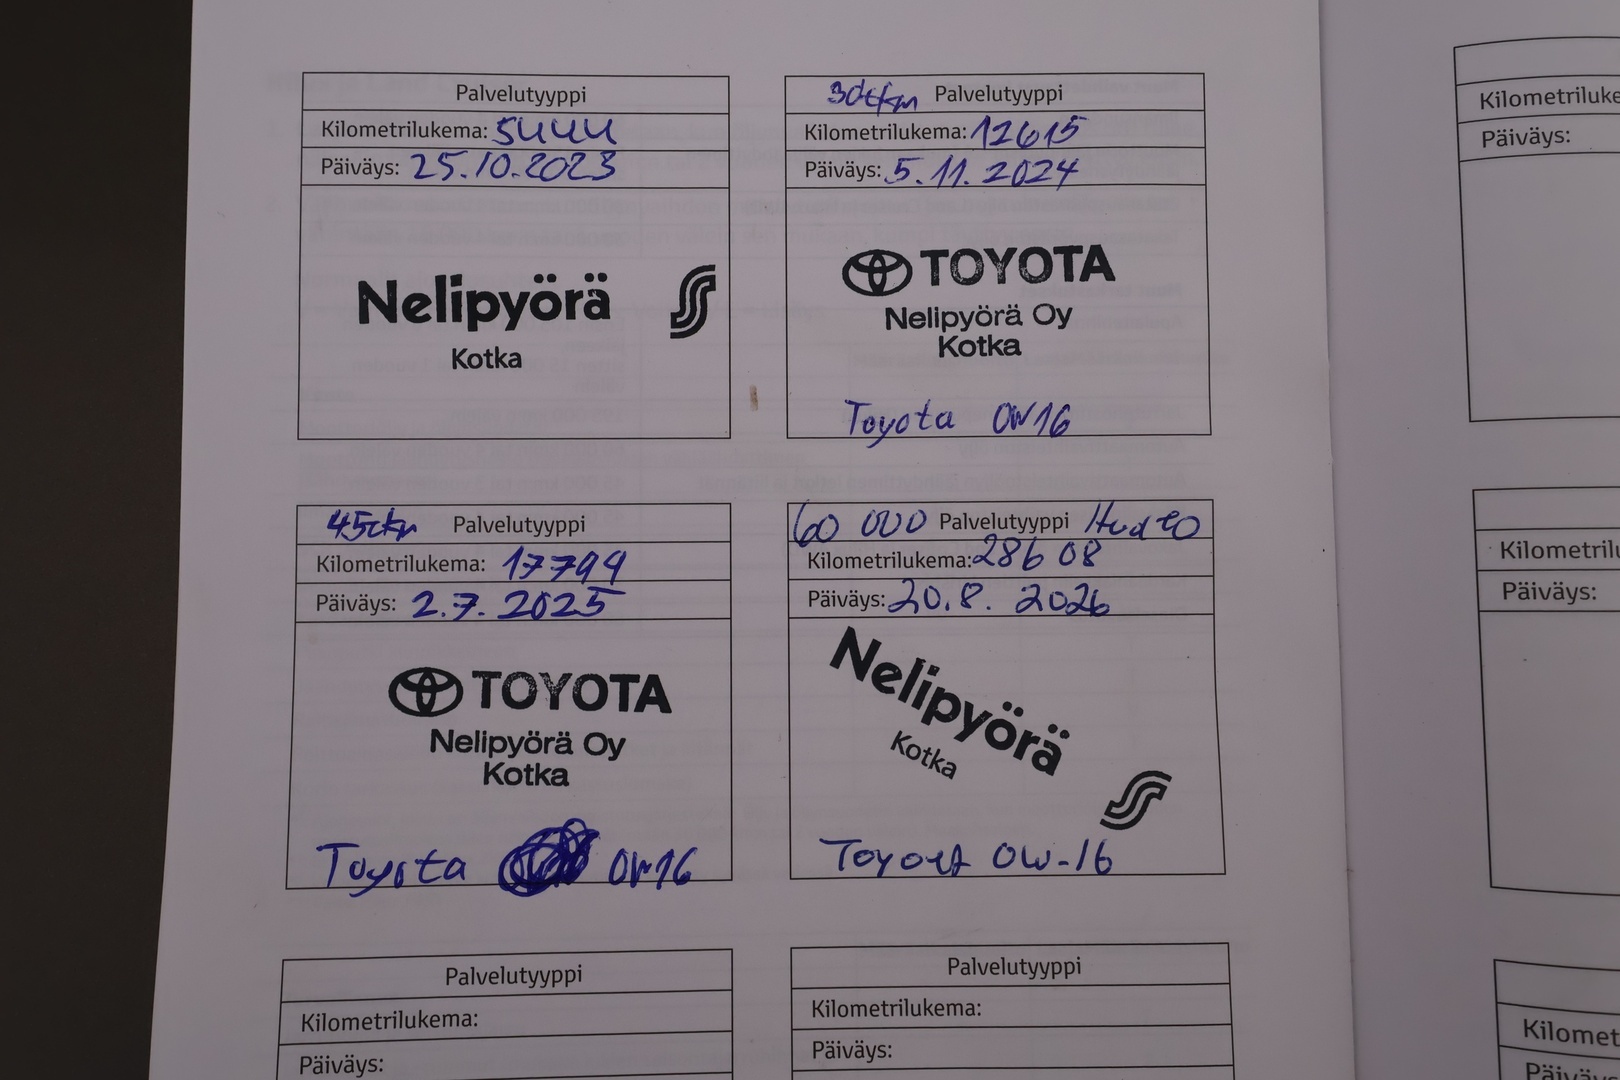 Palvelutyyppi
Kilometrilukema: 5444
Päiväys: 25.10.2023
Nelipyörä
Kotka
30tkm Palvelutyyppi
Kilometrilukema: 12615
Päiväys: 5.11.2024
TOYOTA
Nelipyörä Oy
Kotka
Toyota 0W16
45tkm Palvelutyyppi
Kilometrilukema: 17799
Päiväys: 2.7.2025
TOYOTA
Nelipyörä Oy
Kotka
Toyota 0W16
60 000 Palvelutyyppi Huolto
Kilometrilukema: 28608
Päiväys: 20.8. 2026
Nelipyörä
Kotka
Toyota 0W-16
Palvelutyyppi
Kilometrilukema:
Päiväys:
Palvelutyyppi
Kilometrilukema:
Päiväys:
Kilometriluke
Päiväys:
Kilometrilu
Päiväys:
Kilomet
Päiväys